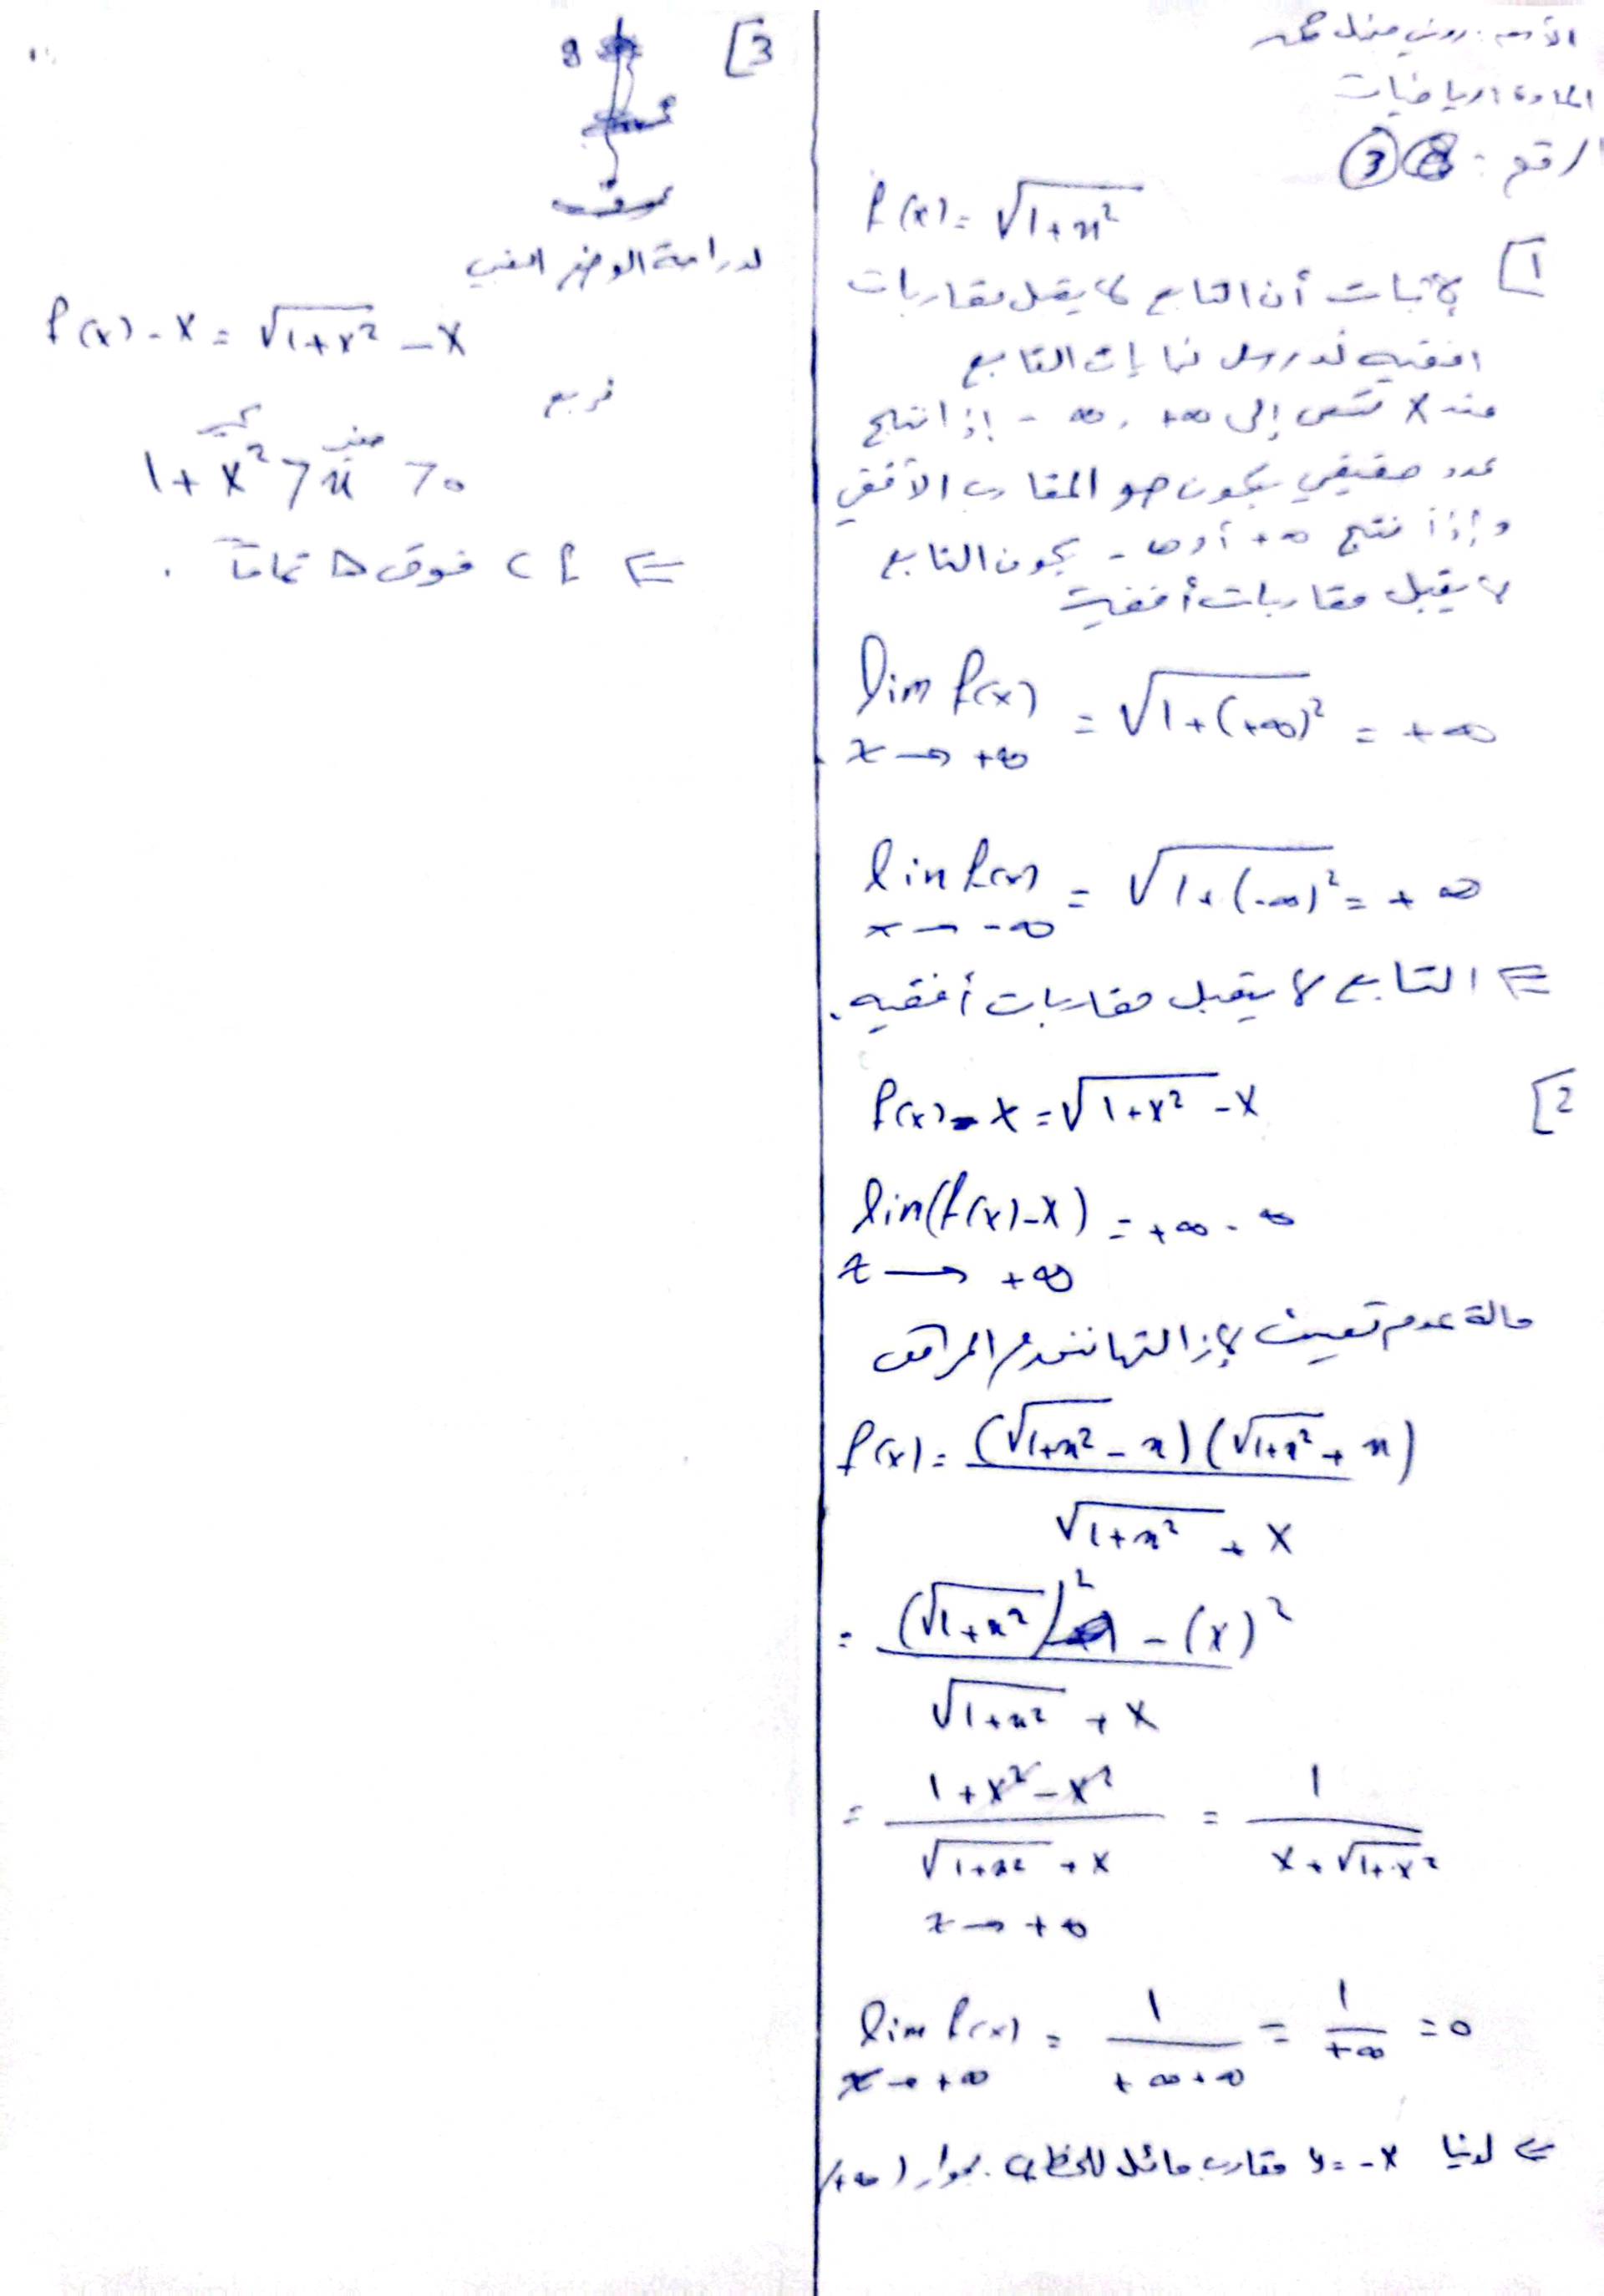 الاسم: روني محمد
المادة: رياضيات
الرقم: 3
f(x) = √(1+x²)
1]
لإثبات أن التابع لا يقبل مقاربات
افقيه ندرس نهايات التابع
عند x تسعى إلى +∞ , -∞ إذا نتج
عدد حقيقي يكون هو المقارب الأفقي
وإذا نتج +∞ أو -∞ يكون التابع
لا يقبل مقاربات أفقية
lim f(x) = √(1+(+∞)²) = +∞
x → +∞
lin f(x) = √(1+(-∞)²) = +∞
x → -∞
⇐ التابع لا يقبل مقاربات أفقيه.
2]
f(x) - x = √(1+x²) - x
lin(f(x)-x) = +∞ - ∞
x → +∞
حالة عدم تعيين لإزالتها نستخدم المرافق
f(x) = (√(1+x²) - x)(√(1+x²) + x) / (√(1+x²) + x)
= ((√(1+x²))² - (x)²) / (√(1+x²) + x)
= (1+x²-x²) / (√(1+x²) + x) = 1 / (x+√(1+x²))
x → +∞
lim f(x) = 1/(+∞+∞) = 1/+∞ = 0
x → +∞
⇐ لدينا y = -x مقارب مائل للخط c بجوار (+∞)
3]
لدراسة الوضع النسبي
f(x) - x = √(1+x²) - x
نربع
1 + x² > x > 0
⇐ c f فوق Δ تماماً .